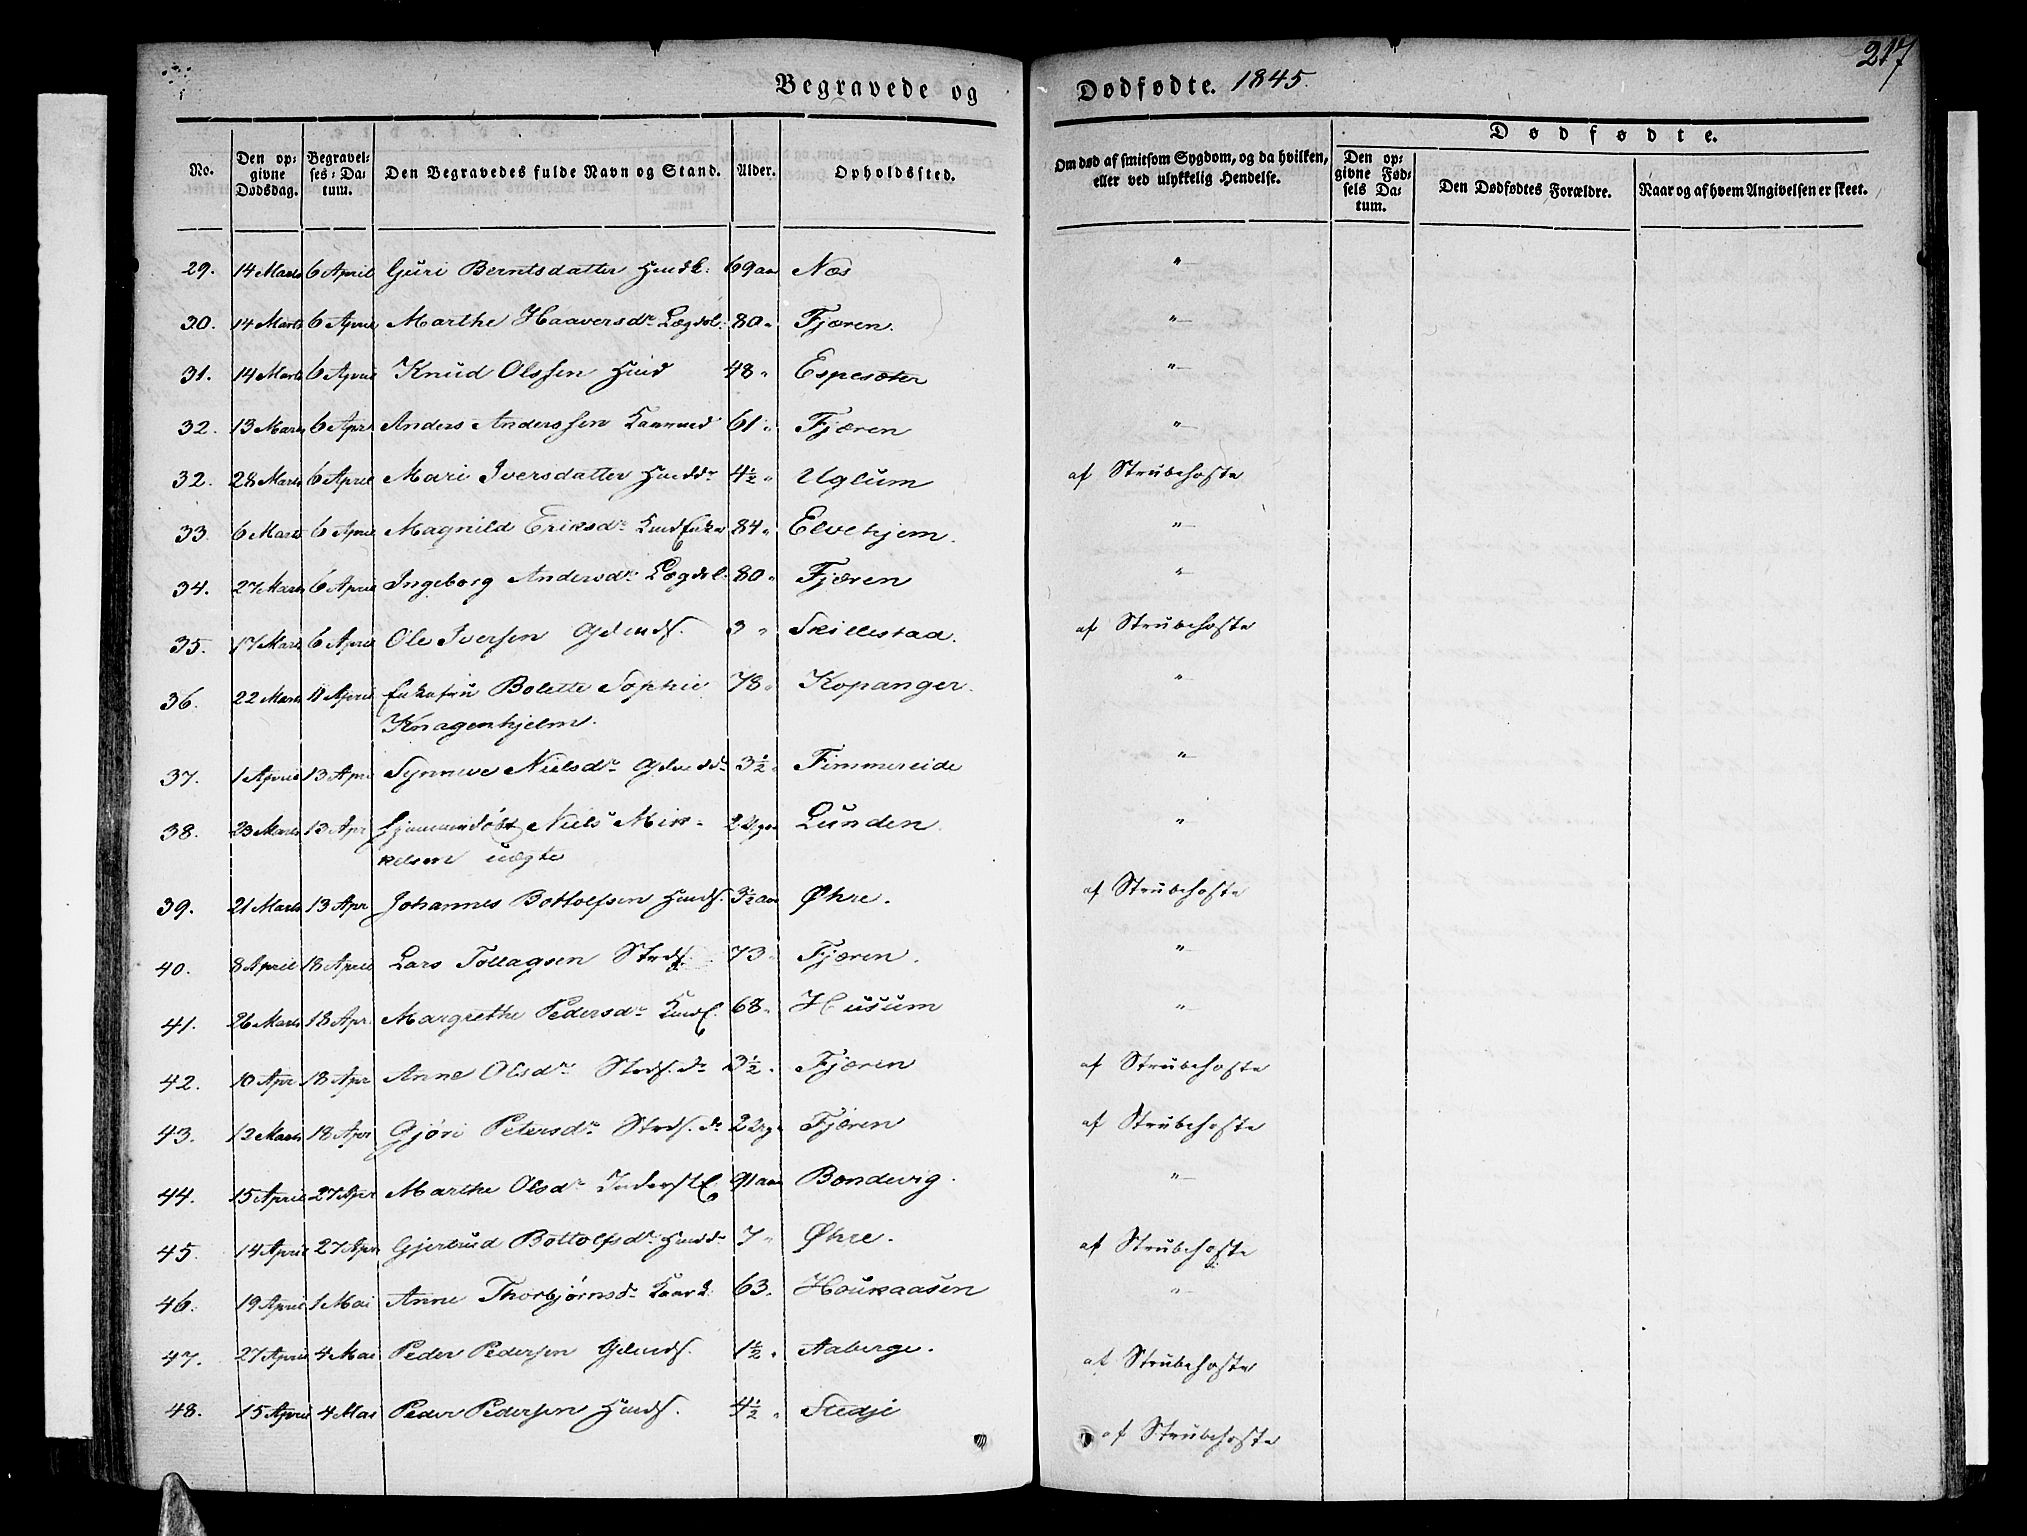 217
Begravede og Dødfødte. 1845.
Dødfødte.
No. Den opgivne Dødsdag. Begravelses-Datum. Den Begravedes fulde Navn og Stand. Alder. Opholdssted. Om død af smitsom Sygdom, og da hvilken, eller ved ulykkelig Hendelse. Den opgivne Fødsels Datum. Den Dødfødtes Forældre. Naar og af hvem Angivelsen er skeet.
29. 14 Marts 6 April Guri Berntsdatter Huusk: 69 aar Næs "
30. 14 Marts 6 April Marthe Haaversdr Lægdsl: 80 " Fjæren. "
31. 14 Marts 6 April Knud Olssen Huusd 48 " Espesæter "
32. 13 Marts 6 Apr Anders Anderssen Kaarmd 61 " Fjæren "
32. 28 Marts 6 April Mari Iversdatter Huusdr 4½ " Uglum af Strubehoste
33. 6 Marts 6 April Magnild Eriksdr Enke 84 " Elvehjem. "
34. 27 Marts 6 April Ingeborg Andersdr Lægdsl. 80 " Fjæren "
35. 17 Marts 6 April Ole Iversen Gdmds. 3 " Skillestad. af Strubehoste
36. 22 Marts 11 April Enkefru Bolette Sophie 78 " Kopanger. "
Knagenhjelm.
37. 1 April 13 Apr Synneve Nielsdr Gdmdr 3½ " Fimmereide "
38. 23 Marts 13 Apr Hjemmedøbt Niels Mik- 2 Uger Lunden. "
kelsen uægte
39. 21 Marts 13 Apr Johannes Bottolfsen Huuss. 3½ aar Øhre. af Strubehoste
40. 8 April 18 April Lars Tollagsen Strds. 73 " Fjæren. "
41. 26 Marts 18 Apr. Margrethe Pedersdr 68 " Husum "
42. 10 Apr 18 Apr Anne Olsdr Strds. dr 3½ " Fjæren af Strubehoste
43. 12 Marts 18 Apr Gjøri Petersdr Strds. dr 2 Uger Fjæren af Strubehoste
44. 15 April 27 Apr Marthe Olsdr Inderst 91 aar Bondevig. "
45. 14 April 27 Apr Gjertrud Bottolfsdr Huusdr 7 " Øhre. af Strubehoste
46. 19 April 1 Mai Anne Thorbjørnsdr Kaark 63. Houkaasen "
47. 27 April 4 Mai Peder Pedersen Gdmds. 1½ " Aaberge. af Strubehoste
48. 15 April 4 Mai Peder Pedersen Huuss. 4½ " Stedje af Strubehoste